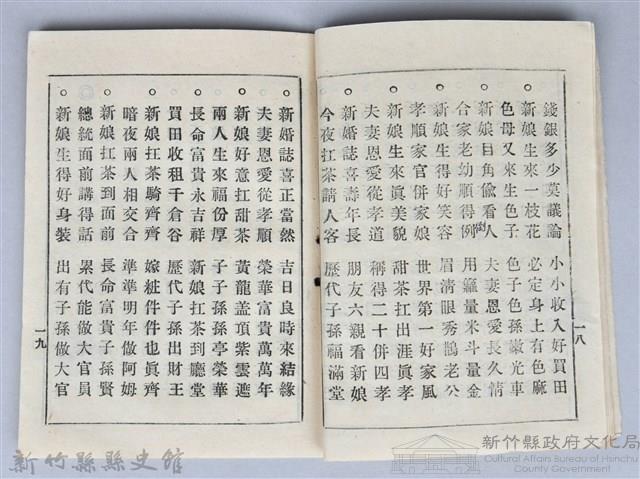 錢銀多少莫議論 小小收入好買田
新娘生來一枝花 必定身上有色麻
色母又來生色子 色子色孫徽光車
新娘目角偸看人 夫妻恩愛長久情
合家老幼順得例 用籮量米斗量金
新娘生得好笑容 眉清眼秀鵲老公
孝順家官併家娘 世界第一好家風
新娘生來眞美貌 甜茶扛出涯眞孝
夫妻恩愛從孝道 稱得二十併四孝
新婚誌喜壽年長 朋友六觀看新娘
今夜扛茶請人客 歷代子孫福滿堂
一八
新婚誌喜正當然 吉日良時來結緣
夫妻恩愛從孝順 榮華富貴萬萬年
新娘好意扛甜茶 黃龍盖頂紫雲遮
兩人生來福份厚 子子孫孫亭榮華
長命富貴永吉祥 新娘扛茶到廳堂
買田收租千倉谷 歷代子孫出財王
新娘扛茶騎齊齊 嫁粧件件也眞齊
暗夜兩人相交合 準準明年做阿姆
新娘扛茶到面前 長命富貴子孫賢
總統面前講得話 累代能做大官員
新娘生得好身裝 出有子孫做大官
一九
新竹縣縣史館
新竹縣政府文化局
Cultural Affairs Bureau of Hsinchu
County Government